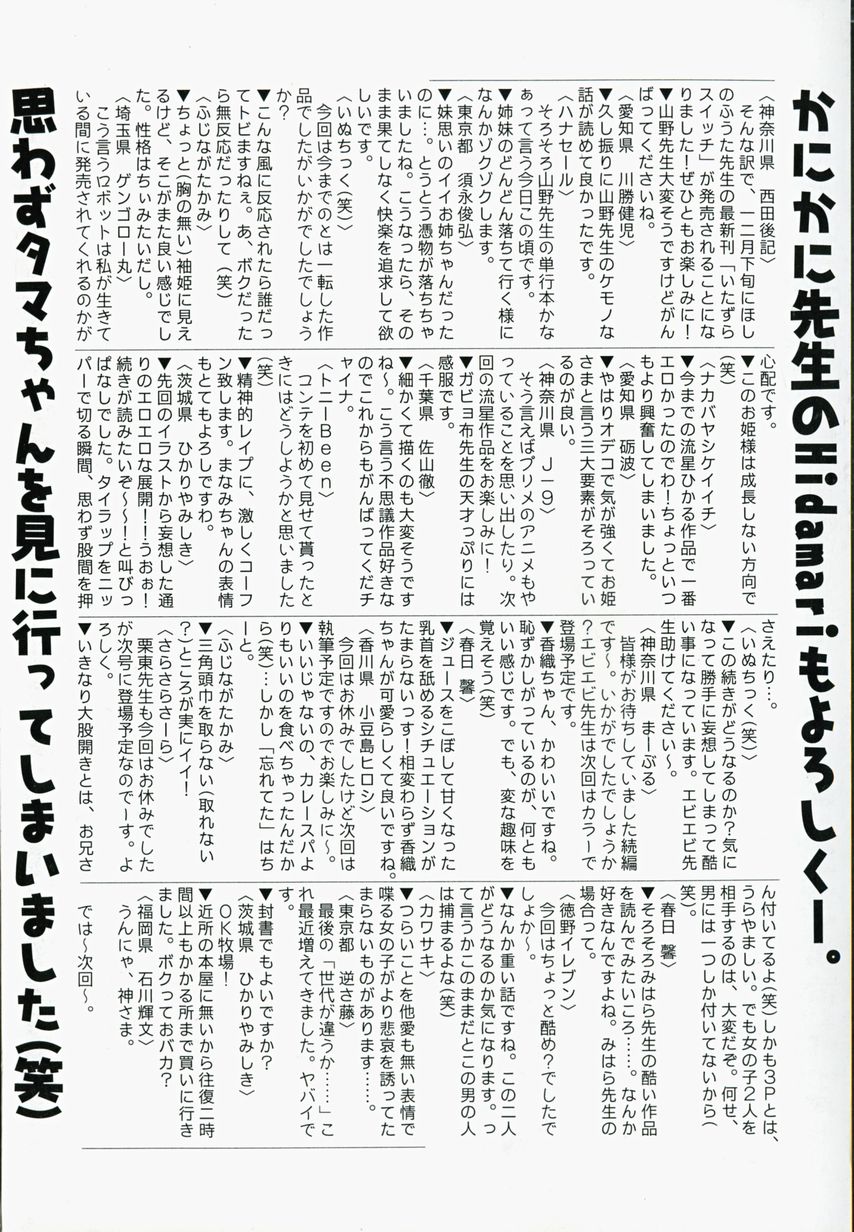 かにかに先生のHidamariもよろしくー。
〈神奈川県 西田後記〉
そんな訳で、一二月下旬にほし
のふうた先生の最新刊「いたずら
スイッチ」が発売されることにな
りました！ぜひともお楽しみに！
▼山野先生大変そうですけどがん
ばってくださいね。
〈愛知県 川勝健児〉
▼久し振りに山野先生のケモノな
話が読めて良かったです。
〈ハナセール〉
そろそろ山野先生の単行本かな
ぁって言う今日この頃です。
▼姉妹のどんどん落ちて行く様に
なんかゾクゾクします。
〈東京都 須永俊弘〉
▼妹思いのイイお姉ちゃんだった
のに…。とうとう憑物が落ちちゃ
いましたね。こうなったら、その
まま果てしなく快楽を追求して欲
しいです。
〈いぬちっく(笑)〉
今回は今までのとは一転した作
品でしたがいかがでしたでしょう
か？
▼こんな風に反応されたら誰だっ
てトビますねぇ。あ、ボクだった
ら無反応だったりして(笑)
〈ふじながたかみ〉
▼ちょっと(胸の無い)袖姫に見え
るけど、そこがまた良い感じでし
た。性格はちぃみたいだし。
〈埼玉県 ゲンゴロー丸〉
こう言うロボットは私が生きて
いる間に発売されてくれるのかが
心配です。
▼このお姫様は成長しない方向で
(笑)
〈ナカバヤシケイイチ〉
▼今までの流星ひかる作品で一番
エロかったのでわ！ちょっといつ
もより興奮してしまいました。
〈愛知県 砺波〉
▼やはりオデコで気が強くてお姫
さまと言う三大要素がそろってい
るのが良い。
〈神奈川県 J-9〉
そう言えばプリメのアニメもや
っていることを思い出したり。次
回の流星作品をお楽しみに！
▼ガビョ布先生の天才っぷりには
感服です。
〈千葉県 佐山徹〉
▼細かくて描くのも大変そうです
ね～。こう言う不思議作品好きな
のでこれからもがんばってくだチ
ャイナ。
〈トニーBeen〉
コンテを初めて見せて貰ったと
きにはどうしようかと思いました
(笑)
▼精神的レイプに、激しくコーフ
ン致します。まなみちゃんの表情
もとてもよろしですわ。
〈茨城県 ひかりやみしき〉
▼先回のイラストから妄想した通
りのエロエロな展開！！うおぉ！
続きが読みたいぞ～～！と叫びっ
ぱなしでした。タイラップをニッ
パーで切る瞬間、思わず股間を押
さえたり…。
〈いぬちっく(笑)〉
▼この続きがどうなるのか？気に
なって勝手に妄想してしまって酷
い事になっています。エビエビ先
生助けてください～。
〈神奈川県 まーぶる〉
皆様がお待ちしていました続編
です～。いかがでしたでしょうか
？エビエビ先生は次回はカラーで
登場予定です。
▼香織ちゃん、かわいいですね。
恥ずかしがっているのが、何とも
いい感じです。でも、変な趣味を
覚えそう(笑)
〈春日 馨〉
▼ジュースをこぼして甘くなった
乳首を舐めるシチュエーションが
たまらないっす！相変わらず香織
ちゃんが可愛らしくて良いですね。
〈香川県 小豆島ヒロシ〉
今回はお休みでしたけど次回は
執筆予定ですのでお楽しみに～。
▼いいじゃないの、カレースパよ
りもいいのを食べちゃったんだか
ら(笑)…しかし「忘れてた」はち
ーと。
〈ふじながたかみ〉
▼三角頭巾を取らない(取れない
？)ところが実にイイ！
〈さらさらさーら〉
栗東先生も今回はお休みでした
が次号に登場予定なのでーす。よ
ろしく。
▼いきなり大股開きとは、お兄さ
ん付いてるよ(笑)しかも3Pとは、
うらやましい。でも女の子2人を
相手するのは、大変だぞ。何せ、
男には一つしか付いてないから(
笑)。
〈春日 馨〉
▼そろそろみはら先生の酷い作品
を読んでみたいころ……。なんか
好きなんですよね。みはら先生の
場合って。
〈徳野イレブン〉
今回はちょっと酷め？でしたで
しょか～。
▼なんか重い話ですね。この二人
がどうなるのか気になります。っ
て言うかこのままだとこの男の人
は捕まるよな(笑)
〈カワサキ〉
▼つらいことを他愛も無い表情で
喋る女の子がより悲哀を誘ってた
まらないものがあります……。
〈東京都 逆さ藤〉
最後の「世代が違うか……」こ
れ最近増えてきました。ヤバイで
す。
▼封書でもよいですか？
〈茨城県 ひかりやみしき〉
OK牧場！
▼近所の本屋に無いから往復二時
間以上もかかる所まで買いに行き
ました。ボクっておバカ？
〈福岡県 石川輝文〉
うんにゃ、神さま。
では～次回～。
思わずタマちゃんを見に行ってしまいました(笑)